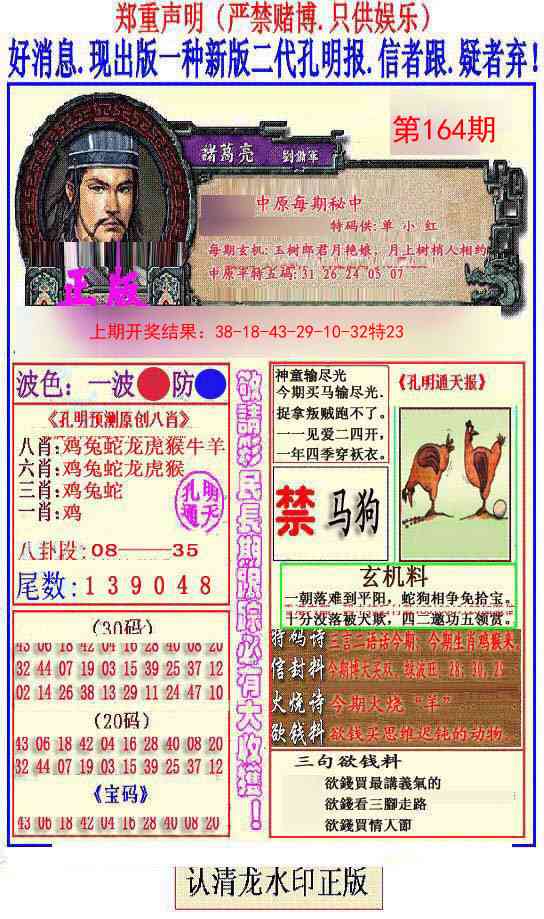 郑重声明（严禁赌博.只供娱乐）
好消息.现出版一种新版二代孔明报.信者跟.疑者弃！
第164期
諸葛亮 劉備軍
中原每期秘中
特码供:单 小 红
每期玄机:玉树郎君月艳娥，月上树梢人相约
中原平特五码:31 26 24 05 07
正版
上期开奖结果：38-18-43-29-10-32特23
波色：一波 防
《孔明预测原创八肖》
八肖:鸡兔蛇龙虎猴牛羊
六肖:鸡兔蛇龙虎猴
三肖:鸡兔蛇
一肖:鸡
孔明
通天
八卦段:08———35
尾数:139048
(30码)
43 06 18 42 04 16 28 40 08 20
32 44 07 19 03 15 39 25 37 12
02 14 26 38 13 29 11 24 47 10
(20码)
43 06 18 42 04 16 28 40 08 20
32 44 07 19 03 15 39 25 37 12
《宝码》
43 06 18 42 04 16 28 40 08 20
敬請彩民長期跟踪必有大收獲！
神童输尽光
今期买马输尽光.
捉拿叛贼跑不了。
一一见爱二四开，
一年四季穿袄衣。
《孔明通天报》
禁 马狗
玄机料
一朝落难到平阳，蛇狗相争免拾宝。
十分没落被犬欺，四二邀功五领赏。
特码诗 三言二语话今期，今期生肖鸡猴来.
信封料 今期博天买双，
火烧诗 今期火烧“羊”
欲钱料 欲钱买思维迟钝的动物.
三句欲钱料
欲錢買最講義氣的
欲錢看三腳走路
欲錢買情人節
认清龙水印正版